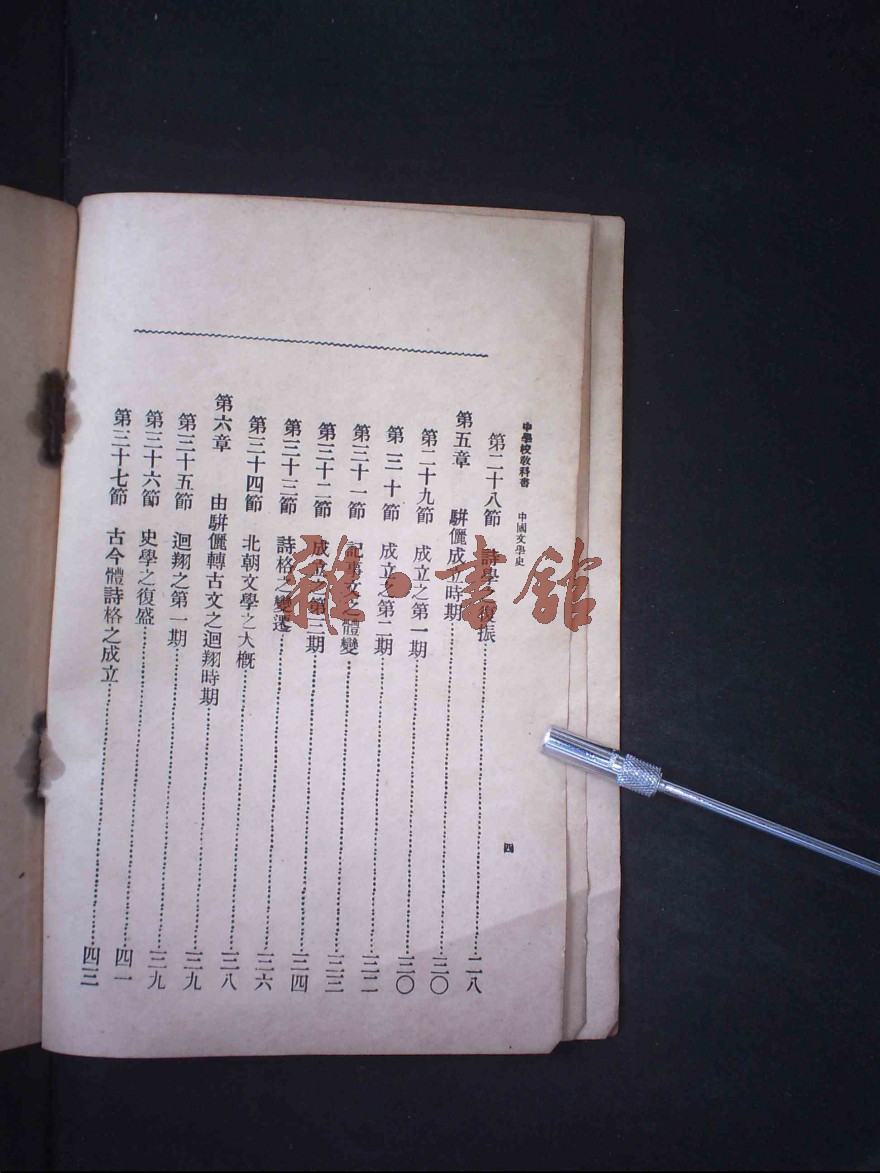 中學校教科書 中國文學史 四
第二十八節 詩學之復振 二八
第五章 駢儷成立時期 三〇
第二十九節 成立之第一期 三〇
第三十節 成立之第二期 三二
第三十一節 記事文之體變 三三
第三十二節 成立之第三期 三四
第三十三節 詩格之變遷 三六
第三十四節 北朝文學之大槪 三八
第六章 由駢儷轉古文之迴翔時期 三九
第三十五節 迴翔之第一期 三九
第三十六節 史學之復盛 四一
第三十七節 古今體詩格之成立 四三
雜·書館